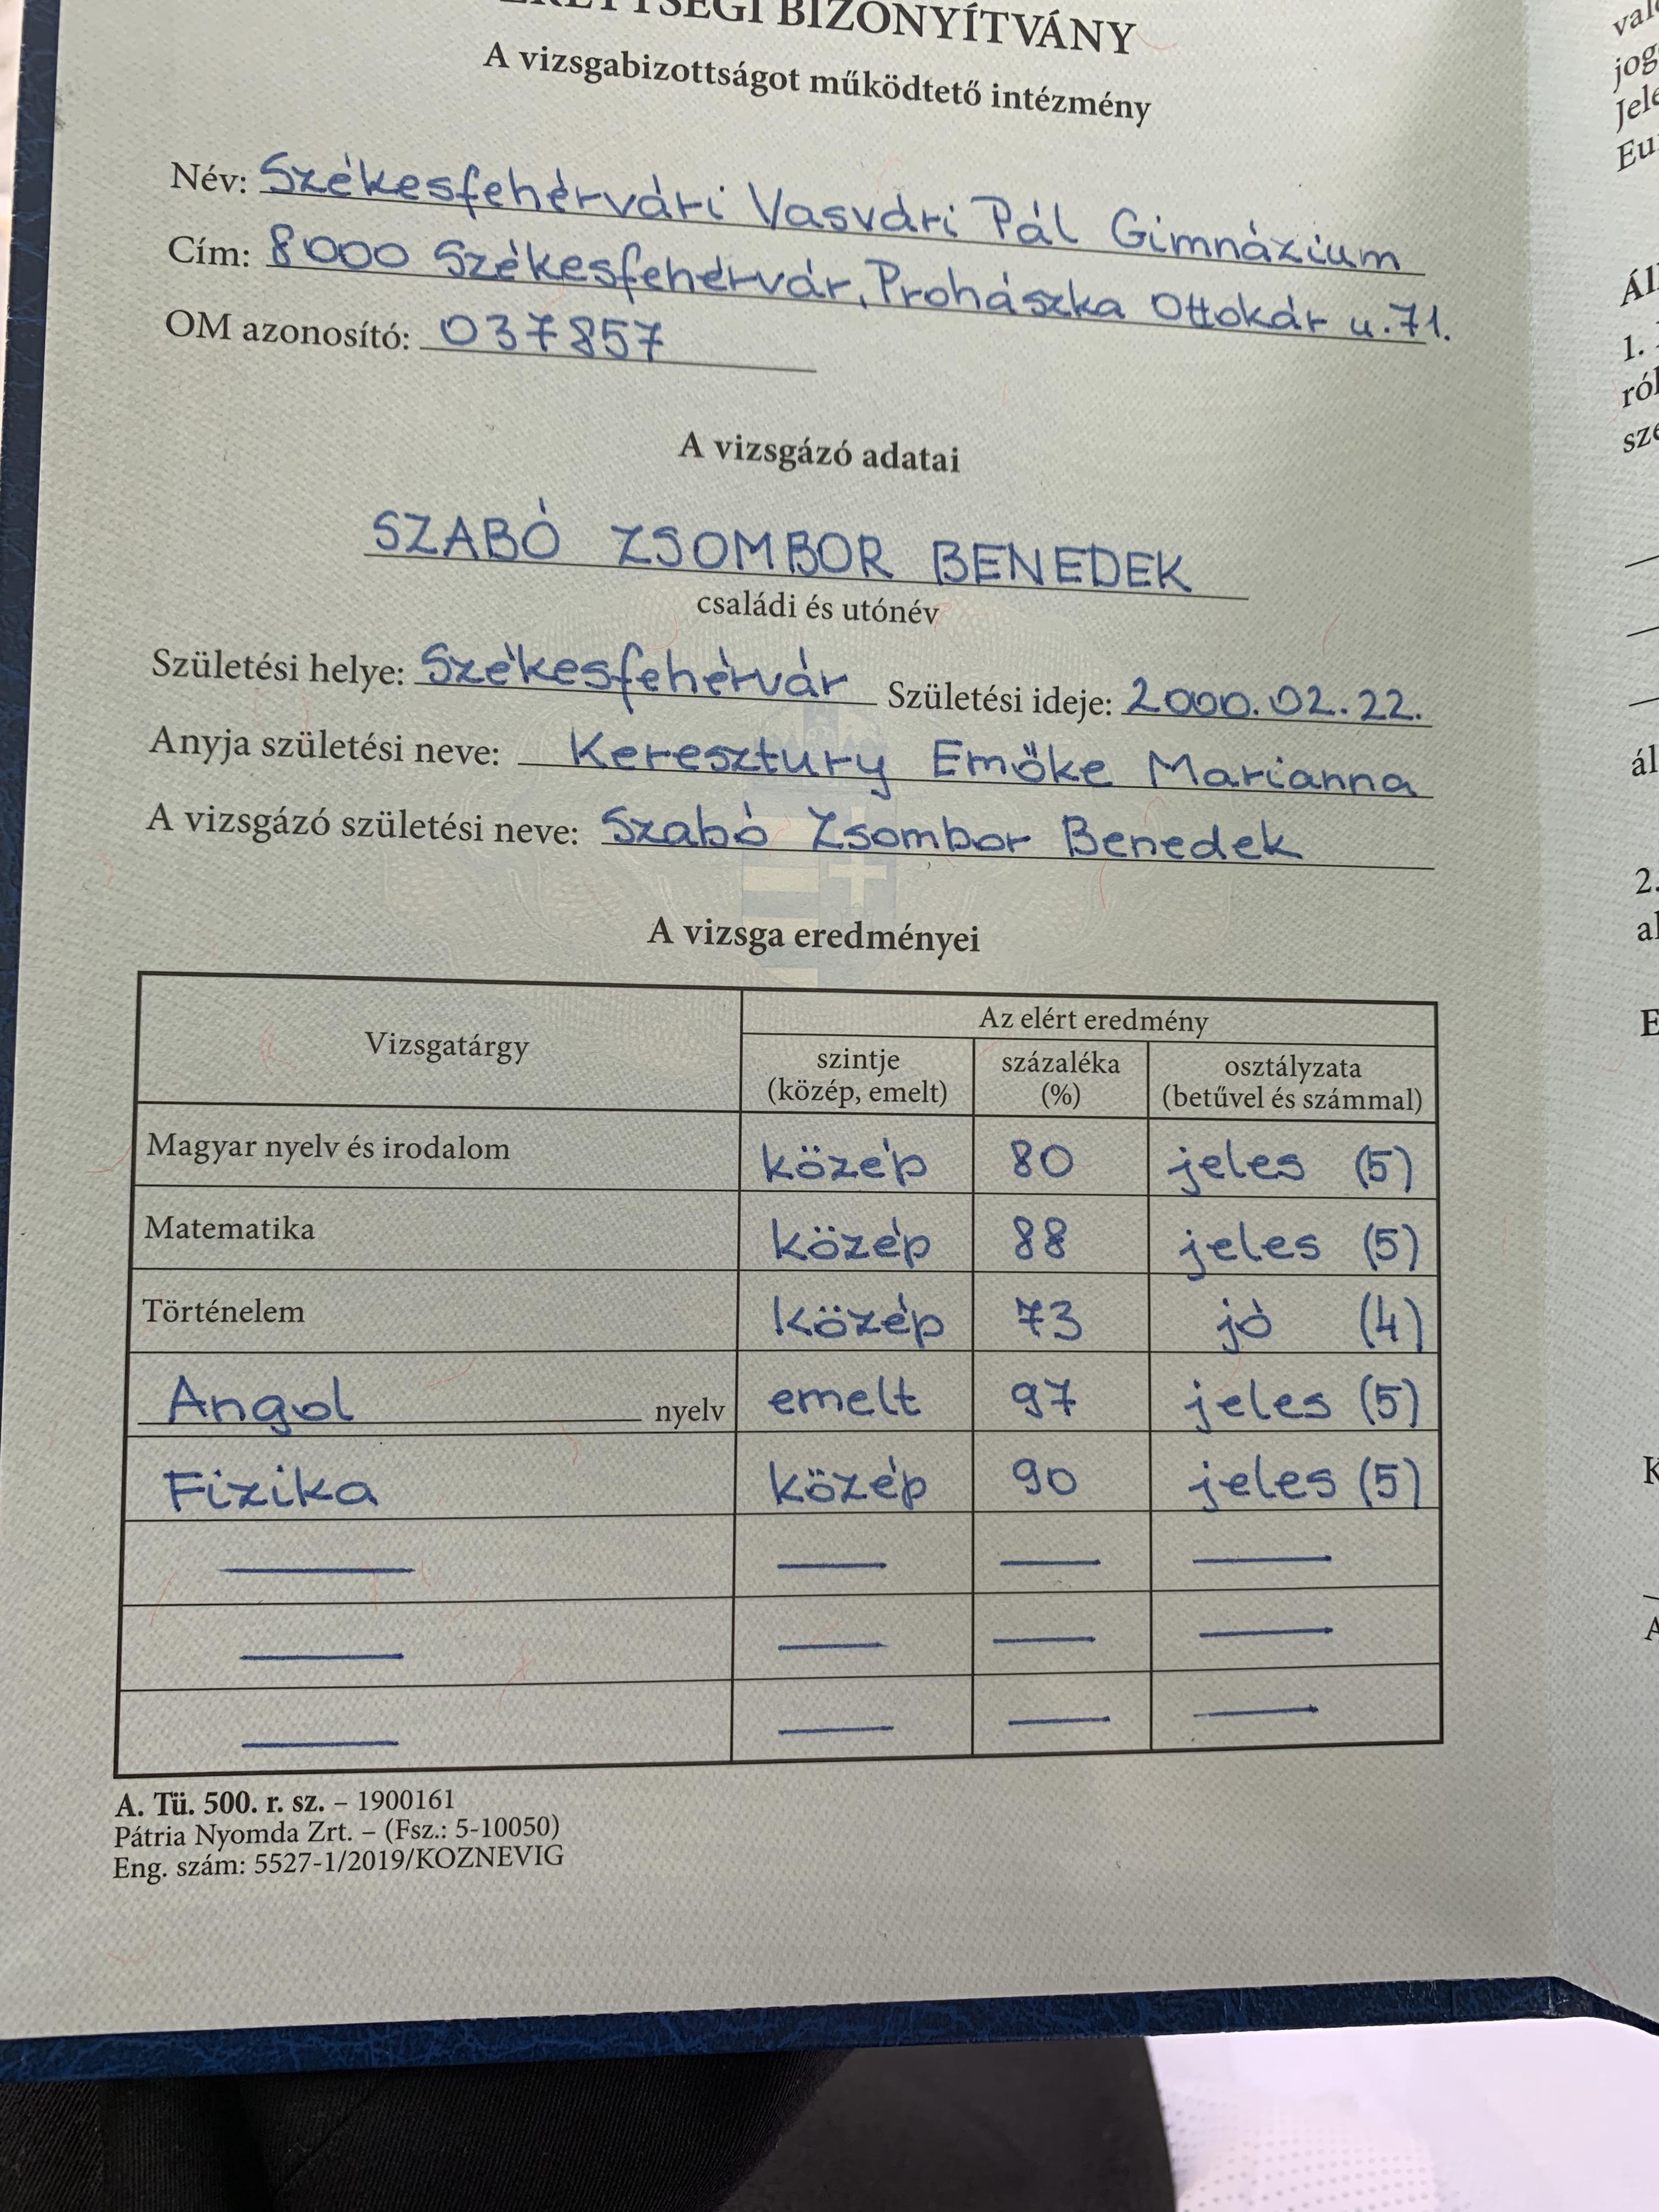 BIZONYÍTVÁNY
A vizsgabizottságot működtető intézmény
Név: Székesfehérvári Vasvári Pál Gimnázium
Cím: 8000 Székesfehérvár, Prohászka Ottokár u. 71.
OM azonosító: 037857
A vizsgázó adatai
SZABÓ ZSOMBOR BENEDEK
családi és utónév
Születési helye: Székesfehérvár Születési ideje: 2000.02.22.
Anyja születési neve: Keresztury Emőke Marianna
A vizsgázó születési neve: Szabó Zsombor Benedek
A vizsga eredményei
Vizsgatárgy
Az elért eredmény
szintje (közép, emelt)
százaléka (%)
osztályzata (betűvel és számmal)
Magyar nyelv és irodalom közép 80 jeles (5)
Matematika közép 88 jeles (5)
Történelem közép 73 jó (4)
Angol nyelv emelt 97 jeles (5)
Fizika közép 90 jeles (5)
A. Tü. 500. r. sz. – 1900161
Pátria Nyomda Zrt. – (Fsz.: 5-10050)
Eng. szám: 5527-1/2019/KOZNEVIG